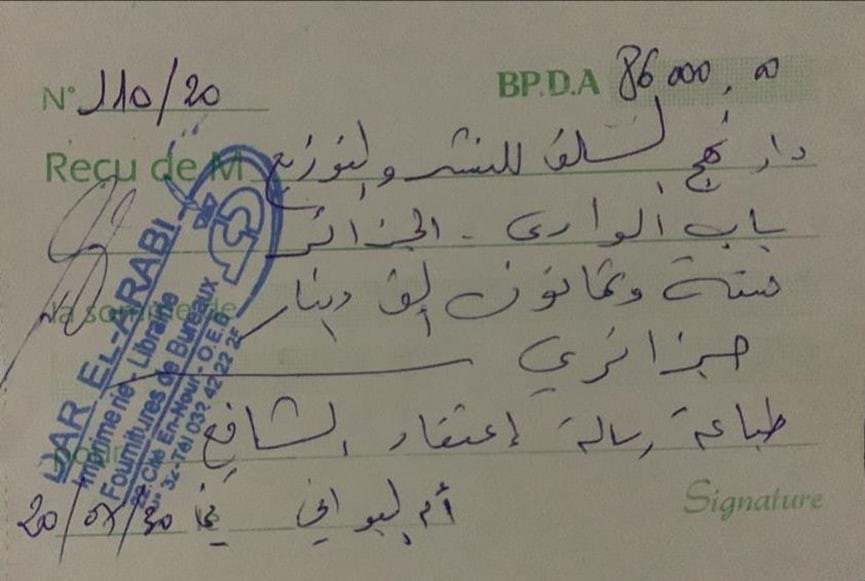 N° 110/20
BP.D.A 86 000,00
Reçu de M دار نهج السلف للنشر والتوزيع
باب الوادي - الجزائر
la somme de ستة وثمانون ألف دينار
جزائري
pour طباعة رسالة إعتقاد الشافعي
أم البواقي في
Signature
DAR EL-ARABI
Imprimerie - Librairie
Fournitures de Bureaux
Cité En-Nour - O.E.B
Tél 032 42 22